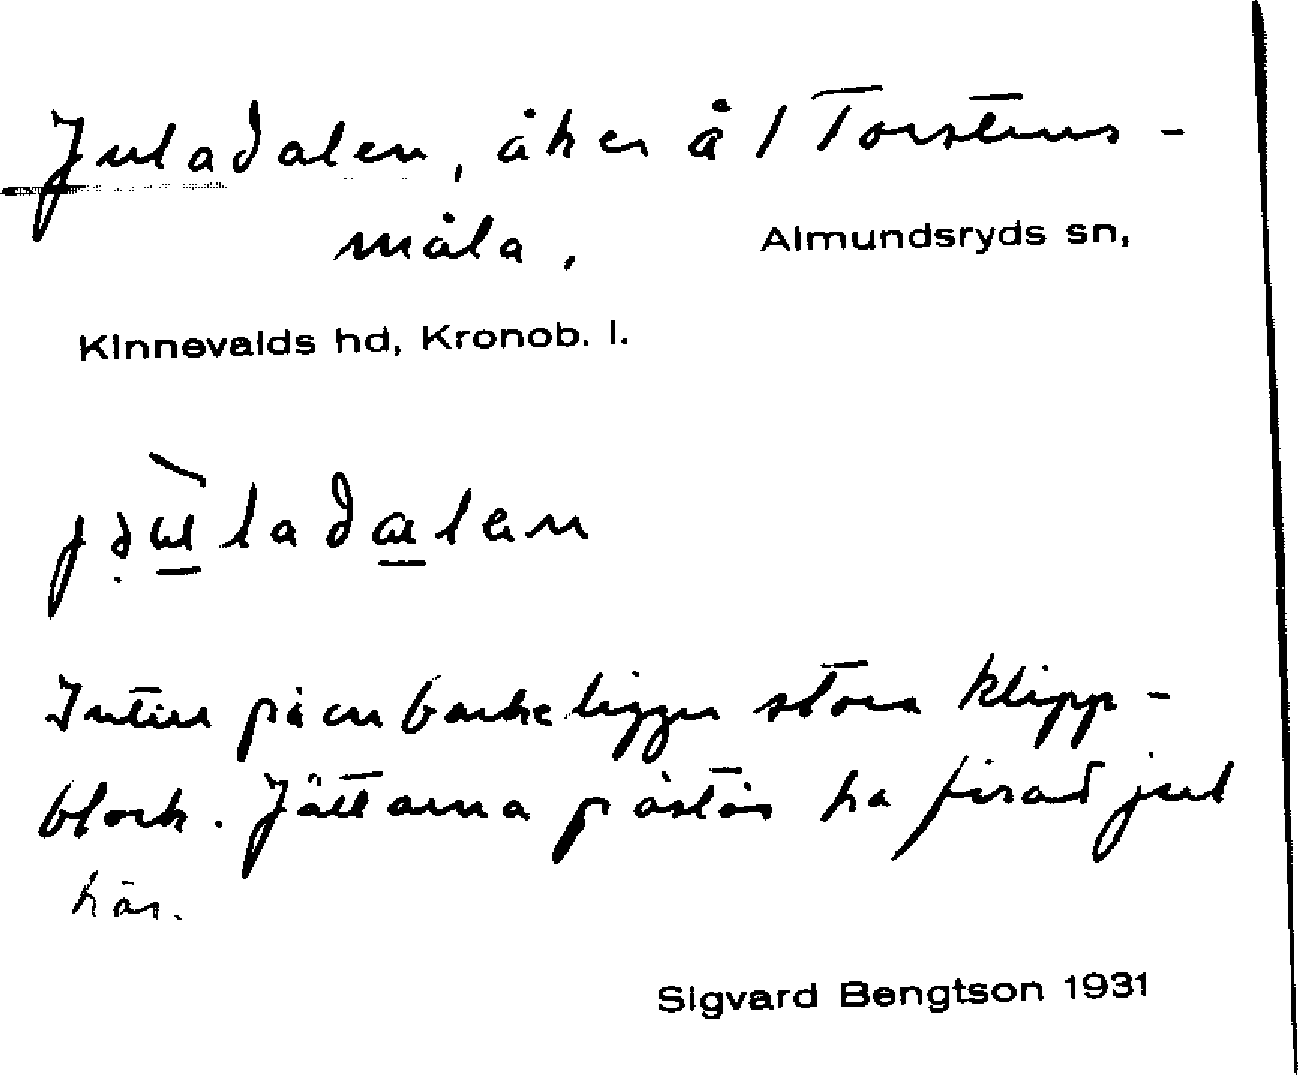 Juladalen, åker å 1 Torstens-
måla,
Almundsryds sn,
Kinnevalds hd, Kronob. l.
Intill på en backe ligger stora klipp-
block. Jättarna påstås ha firat jul
här.
Sigvard Bengtson 1931